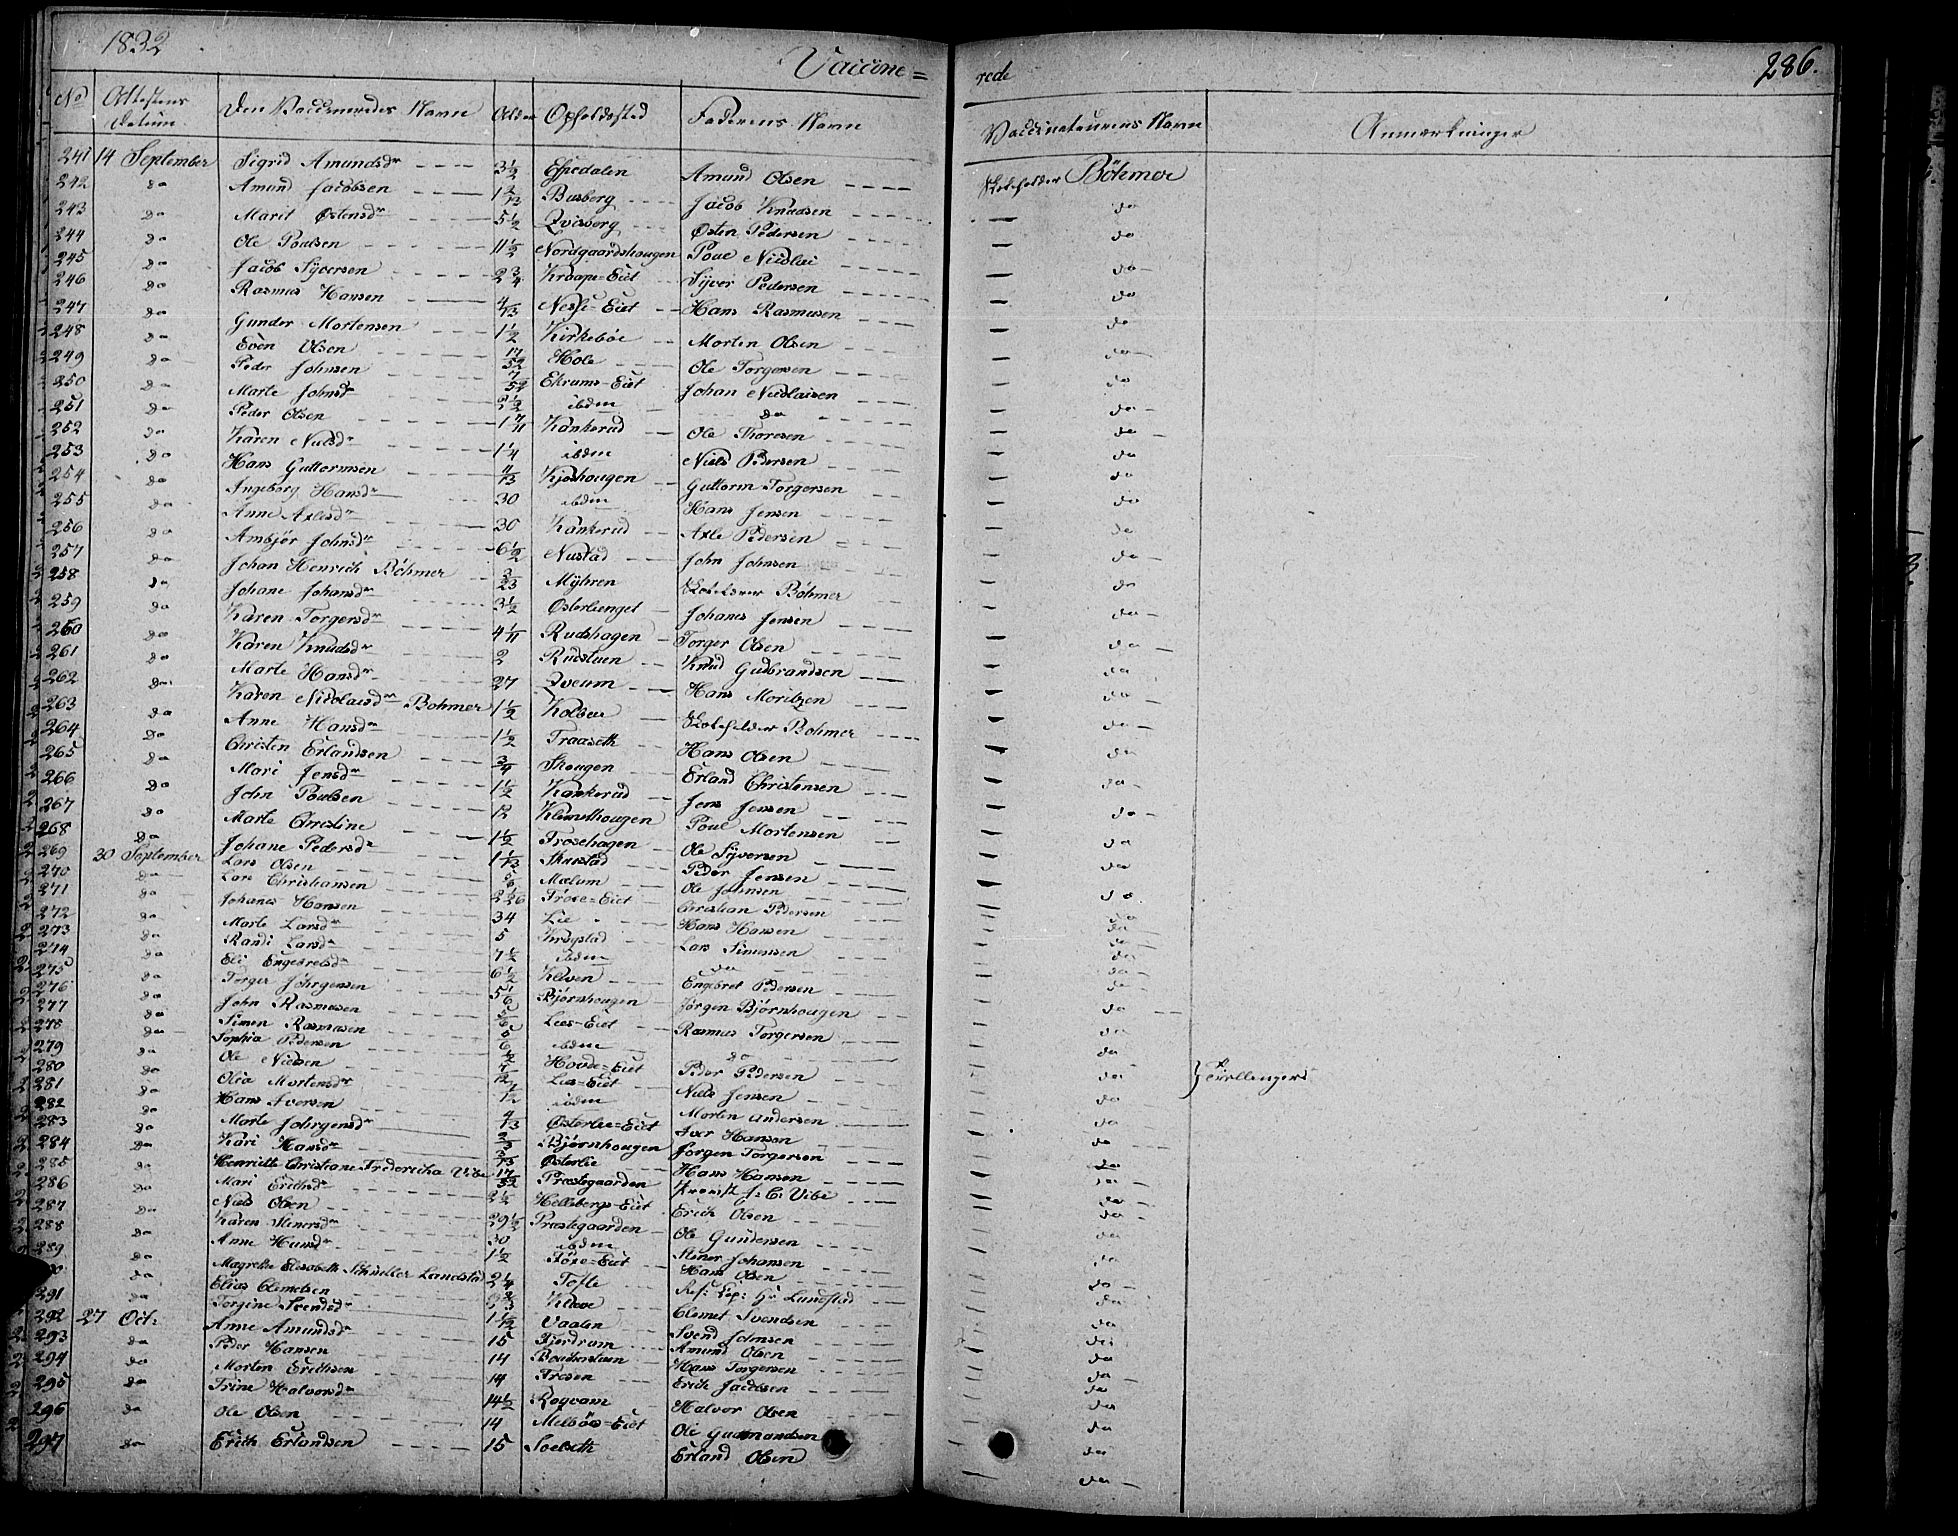 1832
Vaccine=
rede
286.
No Attestens Datum Den Vaccineredes Navn Alder Opholdssted Faderens Navn Vaccinateurens Navn Anmærkninger
241 14 September Sigrid Amundsdr 3 1/2 Espedalen Amund Olsen Böhmer
242 do Amund Jacobsen Busberg Jacob Knudsen do
243 do Marit Østensdr 5 1/2 Qvisberg Østen Pedersen do
244 do Ole Poulsen 11 1/2 Nordgaardshougen Poul Nicolai do
245 do Jacob Syversen 2 3/4 Kraape=Eiet Syver Pedersen do
246 do Rasmus Hansen 4/13 Eiet Hans Rasmusen do
247 do Gunder Mortensen 1 1/2 Kirkeböe Morten Olsen do
248 do Even Olsen 17/52 Hole Ole Torgersen do
249 do Peder Johnsen 7/52 Ekrums=Eiet Johan Nicolaisen do
250 do Marte Johnsdr 2 1/2 ibdm do do
251 do Peder Olsen Kankerud Ole Thoresen do
252 do Karen Nielsdr 1 1/4 ibdm Niels Pedersen do
253 do Hans Guttormsen 11/13 Kjoshougen Guttorm Torgersen do
254 do Ingeborg Hansdr 30 ibdm Hans Jensen do
255 do Anne Axlesdr 30 Kankerud Axle Pedersen do
256 do Ambjör Johnsdr 6 1/2 Nustad John Johnsen do
257 do Johan Henrich Böhmer Myhren Böhmer do
258 do Johane Johansdr 3 1/2 Østerlienget Johanes Jensen do
259 do Karen Torgersdr 4 1/11 Rudshagen Torger Olsen do
260 do Karen Knudsdr 2 Rudstuen Knud Gudbrandsen do
261 do Marte Hansdr 27 Qveum Hans Moritzen do
262 do Karen Nicolaisdr Bohmer 1 1/2 Bohmer do
263 do Anne Hansdr 1 1/2 Traaseth Hans Olsen do
264 do Christen Erlandsen 3/4 Skougen Erland Christensen do
265 do Mari Jensdr 1 1/2 Kankerud Jens Jensen do
266 do John Poulsen 12 Klemethougen Poul Mortensen do
267 do Marte Christine 1 1/2 Frosehagen Ole Syversen do
268 do Johane Pedersdr 1 1/13 Skurstad Peder Jensen do
269 30 September Lars Olsen 5/6 Mælum Ole Johnsen do
270 do Lars Christiansen 2 1/26 Eiet Christian Pedersen do
271 do Johanes Hansen 34 Lie Hans Hansen do
272 do Marte Larsdr 5 Krogstad Lars Simensen do
273 do Randi Larsdr 7 1/2 ibdm do do
274 do Eli Engebretsdr 6 1/2 Kleven Engebret Pedersen do
275 do Torger Jöhrgensen 5 1/6 Bjørnhougen Jörgen Bjørnhougen do
276 do John Rasmusen 5/6 Lies=Eiet Rasmus Torgersen do
277 do Simen Rasmusen ibdm do do
278 do Sophia Pedersen Hovde=Eiet Peder Pedersen do
279 do Ole Nielsen Lies=Eiet Niels Jensen do } Tvillinger
280 do Olia Mortensdr ibdm Morten Andersen do
281 do Hans Iversen 4/13 Østerlie=Eiet Iver Hansen do
282 do Marte Johrgensdr 2/3 Bjørnhougen Jörgen Torgersen do
283 do Kari Hansdr 3/13 Østerlie Hans Hansen do
284 do Henriette Christiane Fredericha Vibe 17/52 Præstegaarden Provst J: C: Vibe do
285 do Mari Erichsdr 2 1/2 Hellebergs=Eiet Erich Olsen do
286 do Niels Olsen 29 1/2 Præstegaarden Ole Gundersen do
287 do Karen Stenersdr 30 ibdm Stener Johansen do
288 do Anne Hansdr 1 1/2 Eiet Hans Olsen do
289 do Magrethe Elisabeth Schieller Landstad 2 1/4 Tofte Res: Cap: Hr Lundstad do
290 do Elias Clemetsen Kleve Clemet Svendsen do
291 do Torgine Svendsdr 1 1/12 Vaalen Svend Johnsen do
292 27 Oct: Anne Amundsdr 15 Fjerdrum Amund Olsen do
293 do Peder Hansen 14 Hans Torgersen do
294 do Morten Erichsen 14 Frosen Erich Jacobsen do
295 do Trine Halvorsdr 14 1/2 Rogvam Halvor Olsen do
296 do Ole Olsen 14 Melböe=Eiet Ole Gudmundsen do
297 do Erich Erlandsen 15 Soelseth Erland Olsen do